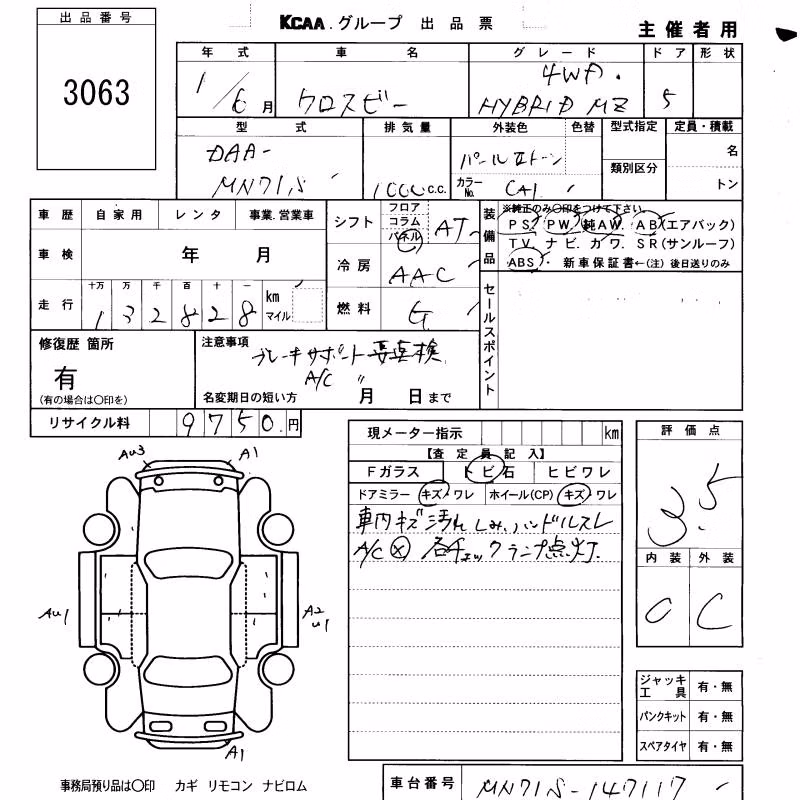 出品番号
3063
KCAA.グループ 出品票
主催者用
年式 車名 グレード ドア 形状
1/6月 クロスビー 4WD. HYBRID MZ 5
型式 排気量 外装色 色替 型式指定 定員・積載
DAA- MN71S 1000 c.c. パールIIトーン 類別区分 名
カラーNo. CA1 トン
車歴 自家用 レンタ 事業.営業車
車検 年 月
走行 十万 万 千 百 十 一 km マイル
1 3 2 8 2 8
シフト フロア コラム パネル AT
冷房 AAC
燃料 G
装備品 ※純正のみ○印をつけて下さい。
PS. PW. 純AW. AB(エアバック)
TV. ナビ. カワ. SR(サンルーフ)
ABS. 新車保証書←(注) 後日送りのみ
セールスポイント
修復歴 箇所
有
(有の場合は○印を)
注意事項
ブレーキサポート要点検
A/C 〃
名変期日の短い方 月 日まで
リサイクル料 9750.円
現メーター指示 km
【査定員記入】
Fガラス トビ石 ヒビワレ
ドアミラー キズ・ワレ ホイール(CP) キズ・ワレ
車内キズ汚れ しみ,ハンドルスレ
A/C ⓧ 各チェックランプ点灯
評価点
3.5
内装 外装
C C
AU3 A1
AU1 A2 U1
A1
ジャッキ工具 有・無
パンクキット 有・無
スペアタイヤ 有・無
事務局預り品は○印 カギ リモコン ナビロム
車台番号 MN71S-147117